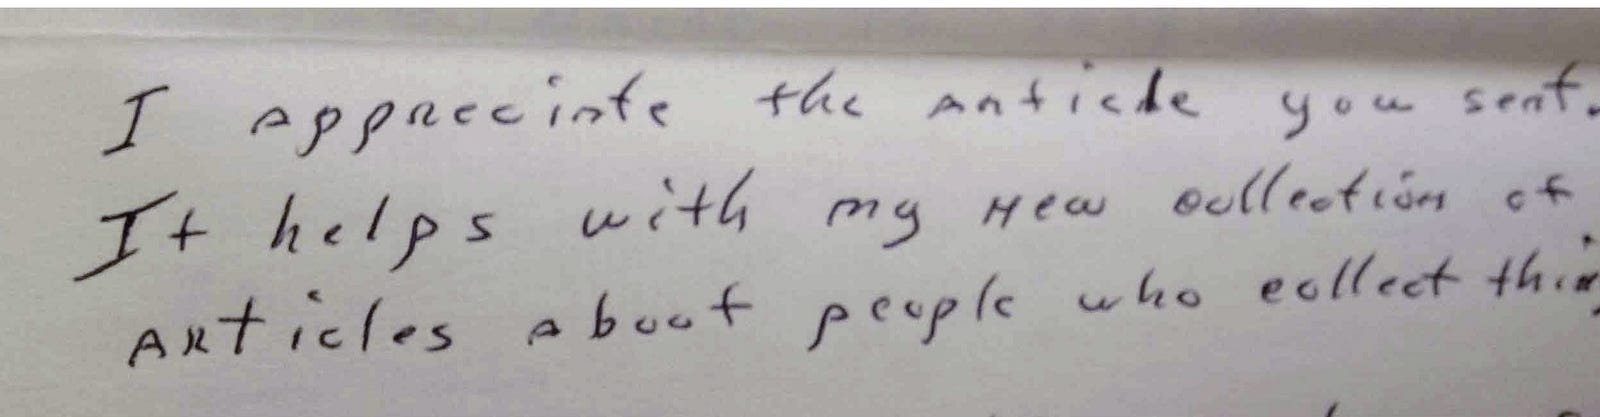 I appreciate the article you sent.
It helps with my new collection of
articles about people who collect